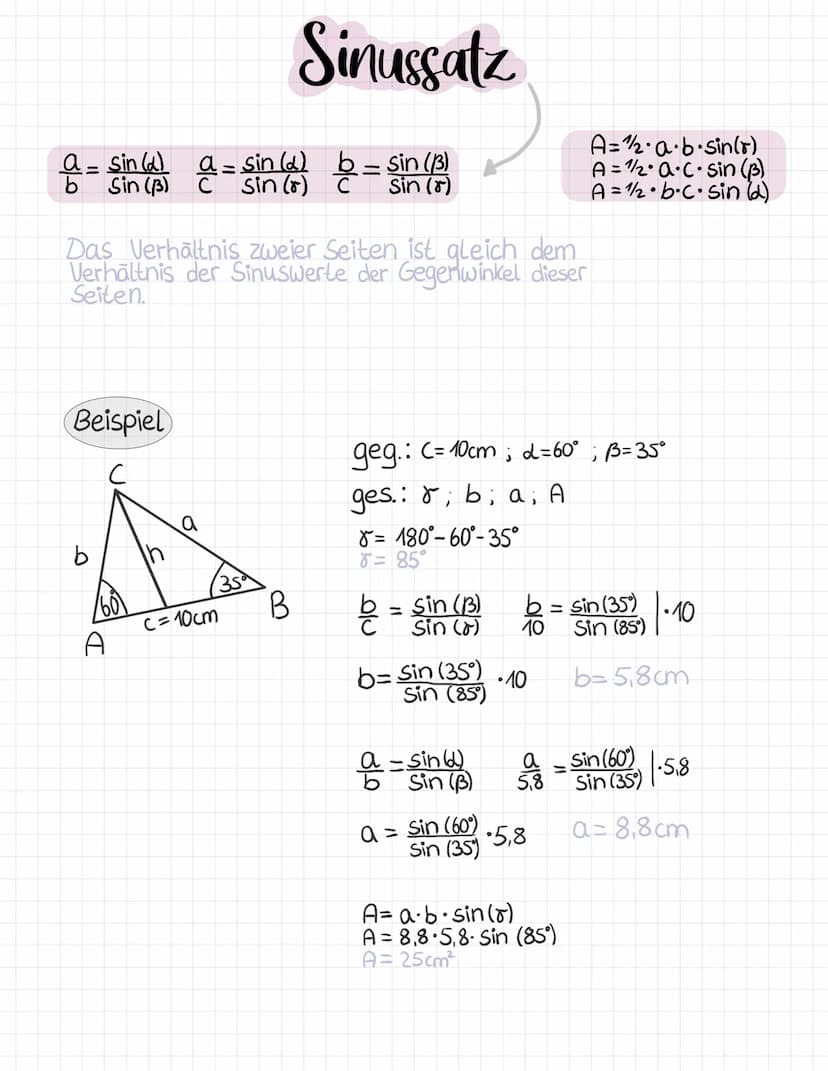 Sinussatz
a/b = sin(α)/sin(β) a/c = sin(α)/sin(γ) b/c = sin(β)/sin(γ)
A=½·a·b·sin(γ)
A=½·a·c·sin(β)
A=½·b·c·sin(α)
Das Verhältnis zweier Seiten ist gleich dem
Verhältnis der Sinuswerte der Gegenwinkel dieser
Seiten.
Beispiel
C
a
b
h
35°
60°
B
c=10cm
A
geg.: c=10cm ; α=60° ; β=35°
ges.: γ ; b ; a ; A
γ= 180°-60°-35°
γ= 85°
b/c = sin(β)/sin(γ) b/10 = sin(35°)/sin(85°) |·10
b= sin(35°)/sin(85°) ·10 b= 5,8cm
a/b = sin(α)/sin(β) a/5,8 = sin(60°)/sin(35°) |·5,8
a = sin(60°)/sin(35°) ·5,8 a= 8,8cm
A= a·b·sin(γ)
A= 8,8·5,8·sin(85°)
A= 25cm²